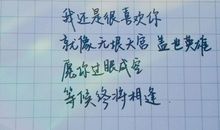 我还是很喜欢你
就像无垠大宫 盖世英雄
愿你过眼成空
等候终将相逢